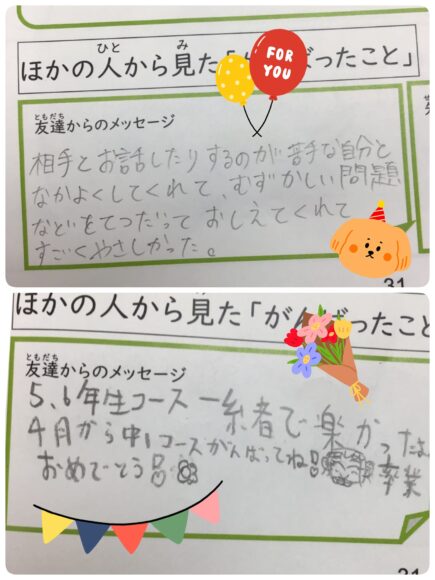 ほかの人から見た「がんばったこと」
ひと
み
FOR YOU
ともだち
友達からのメッセージ
相手とお話したりするのが苦手な自分と
なかよくしてくれて、むずかしい問題
などをてつだって おしえてくれて
すごくやさしかった。
31
ほかの人から見た「がんばったこと
ともだち
友達からのメッセージ
5、6年生コース一緒で楽かったよ
4月から中1コースがんばってね!
おめでとう!
卒業
31